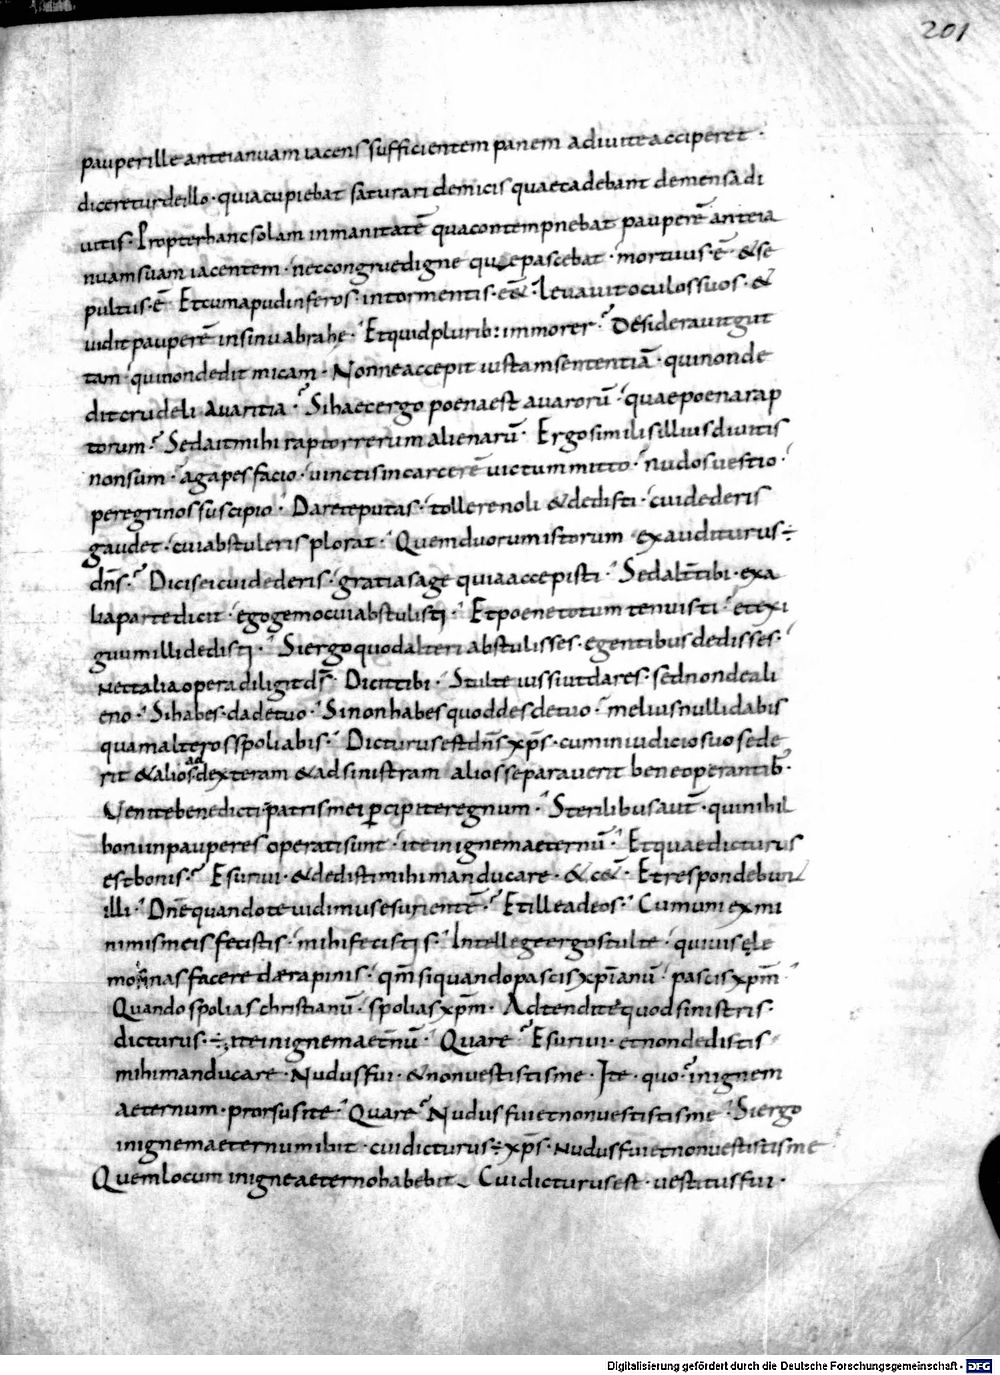 201
pauper ille ante ianuam iacens sufficientem panem a diuite acciperet ·
diceretur de illo · quia cupiebat saturari de micis quae cadebant de mensa di
uitis · Propter hanc solam inmanitatē qua contempnebat pauperē ante ia
nuam suam iacentem · nec congrue digne que pascebat · mortuus · ē · & se
pultus · ē Et cum apud inferos · in tormentis · eē& · leuauit oculos suos · &
uidit pauperē in sinu abrahe · Et quid plurib: immorer · Desiderauit gut
tam · qui non dedit micam · Nonne accepit iustam sententiā · qui non de
dit crudeli auaritia · Si haec ergo poena est auarorū · quae poena rap
torum · Sed ait mihi raptor rerum alienarū · Ergo similis illius diuitis
non sum · agapes facio · uinctis in carcerē uictum mitto · nudos uestio ·
peregrinos suscipio · Dare te putas · tollere noli & dedisti · cui dederis
gaudet · cui abstuleris plorat · Quem duorum istorum exauditurus ÷
dn̄s · Dicis ei cui dederis · gratias age quia accepisti · Sed alt̄ tibi · ex a
lia parte dicit · ego gemo cui abstulisti · Et poene totum tenuisti · et exi
guum illi dedisti · Si ergo quod alteri abstulisses · egentibus dedisses ·
Nec talia opera diligit ds̄ · Dicit tibi · Stulte iussi ut dares · sed non de ali
eno · Si habes · da de tuo · Si non habes quod des de tuo · melius nulli dabis
quam alteros spoliabis · Dicturus est dn̄s xp̄s · cum in iudicio suo sede
rit & alios ad dexteram & ad sinistram alios separauerit bene operantib; ·
Uenite benedicti patris mei p̱cipite regnum · Sterilibus aut̄ · qui nihil
boni in pauperes operati sunt · ite in ignem aeternū · Et quae dicturus
est bonis · Esuriui · & dedisti mihi manducare · & cē · Et respondebun
illi · Dn̄e quando te uidimus esurientē · Et ille ad eos · Cum uni ex mi
nimis meis fecistis · mihi fecistis · Intellege ergo stulte · qui uis ęle
mosinas facere dae rapinis · qm̄ si quando pascis xp̄ianū · pascis xp̄m ·
Quando spolias christianū · spolias xp̄m · Adtendite quod sinistris ·
dicturus · ÷ ; ite in ignem aet̄nū · Quare · Esuriui · et non dedistis
mihi manducare · Nudus fui · & non uestistis me · Ite · quo · in ignem
aeternum · prorsus ite · Quare · Nudus fui et non uestistis me · Si ergo
in ignem aeternum ibit · cui dicturus ÷ xp̄s · nudus fui et non uestistis me
Quem locum in igne aeterno habebit · Cui dicturus est · uestitus fui ·
Digitalisierung gefördert durch die Deutsche Forschungsgemeinschaft - DFG